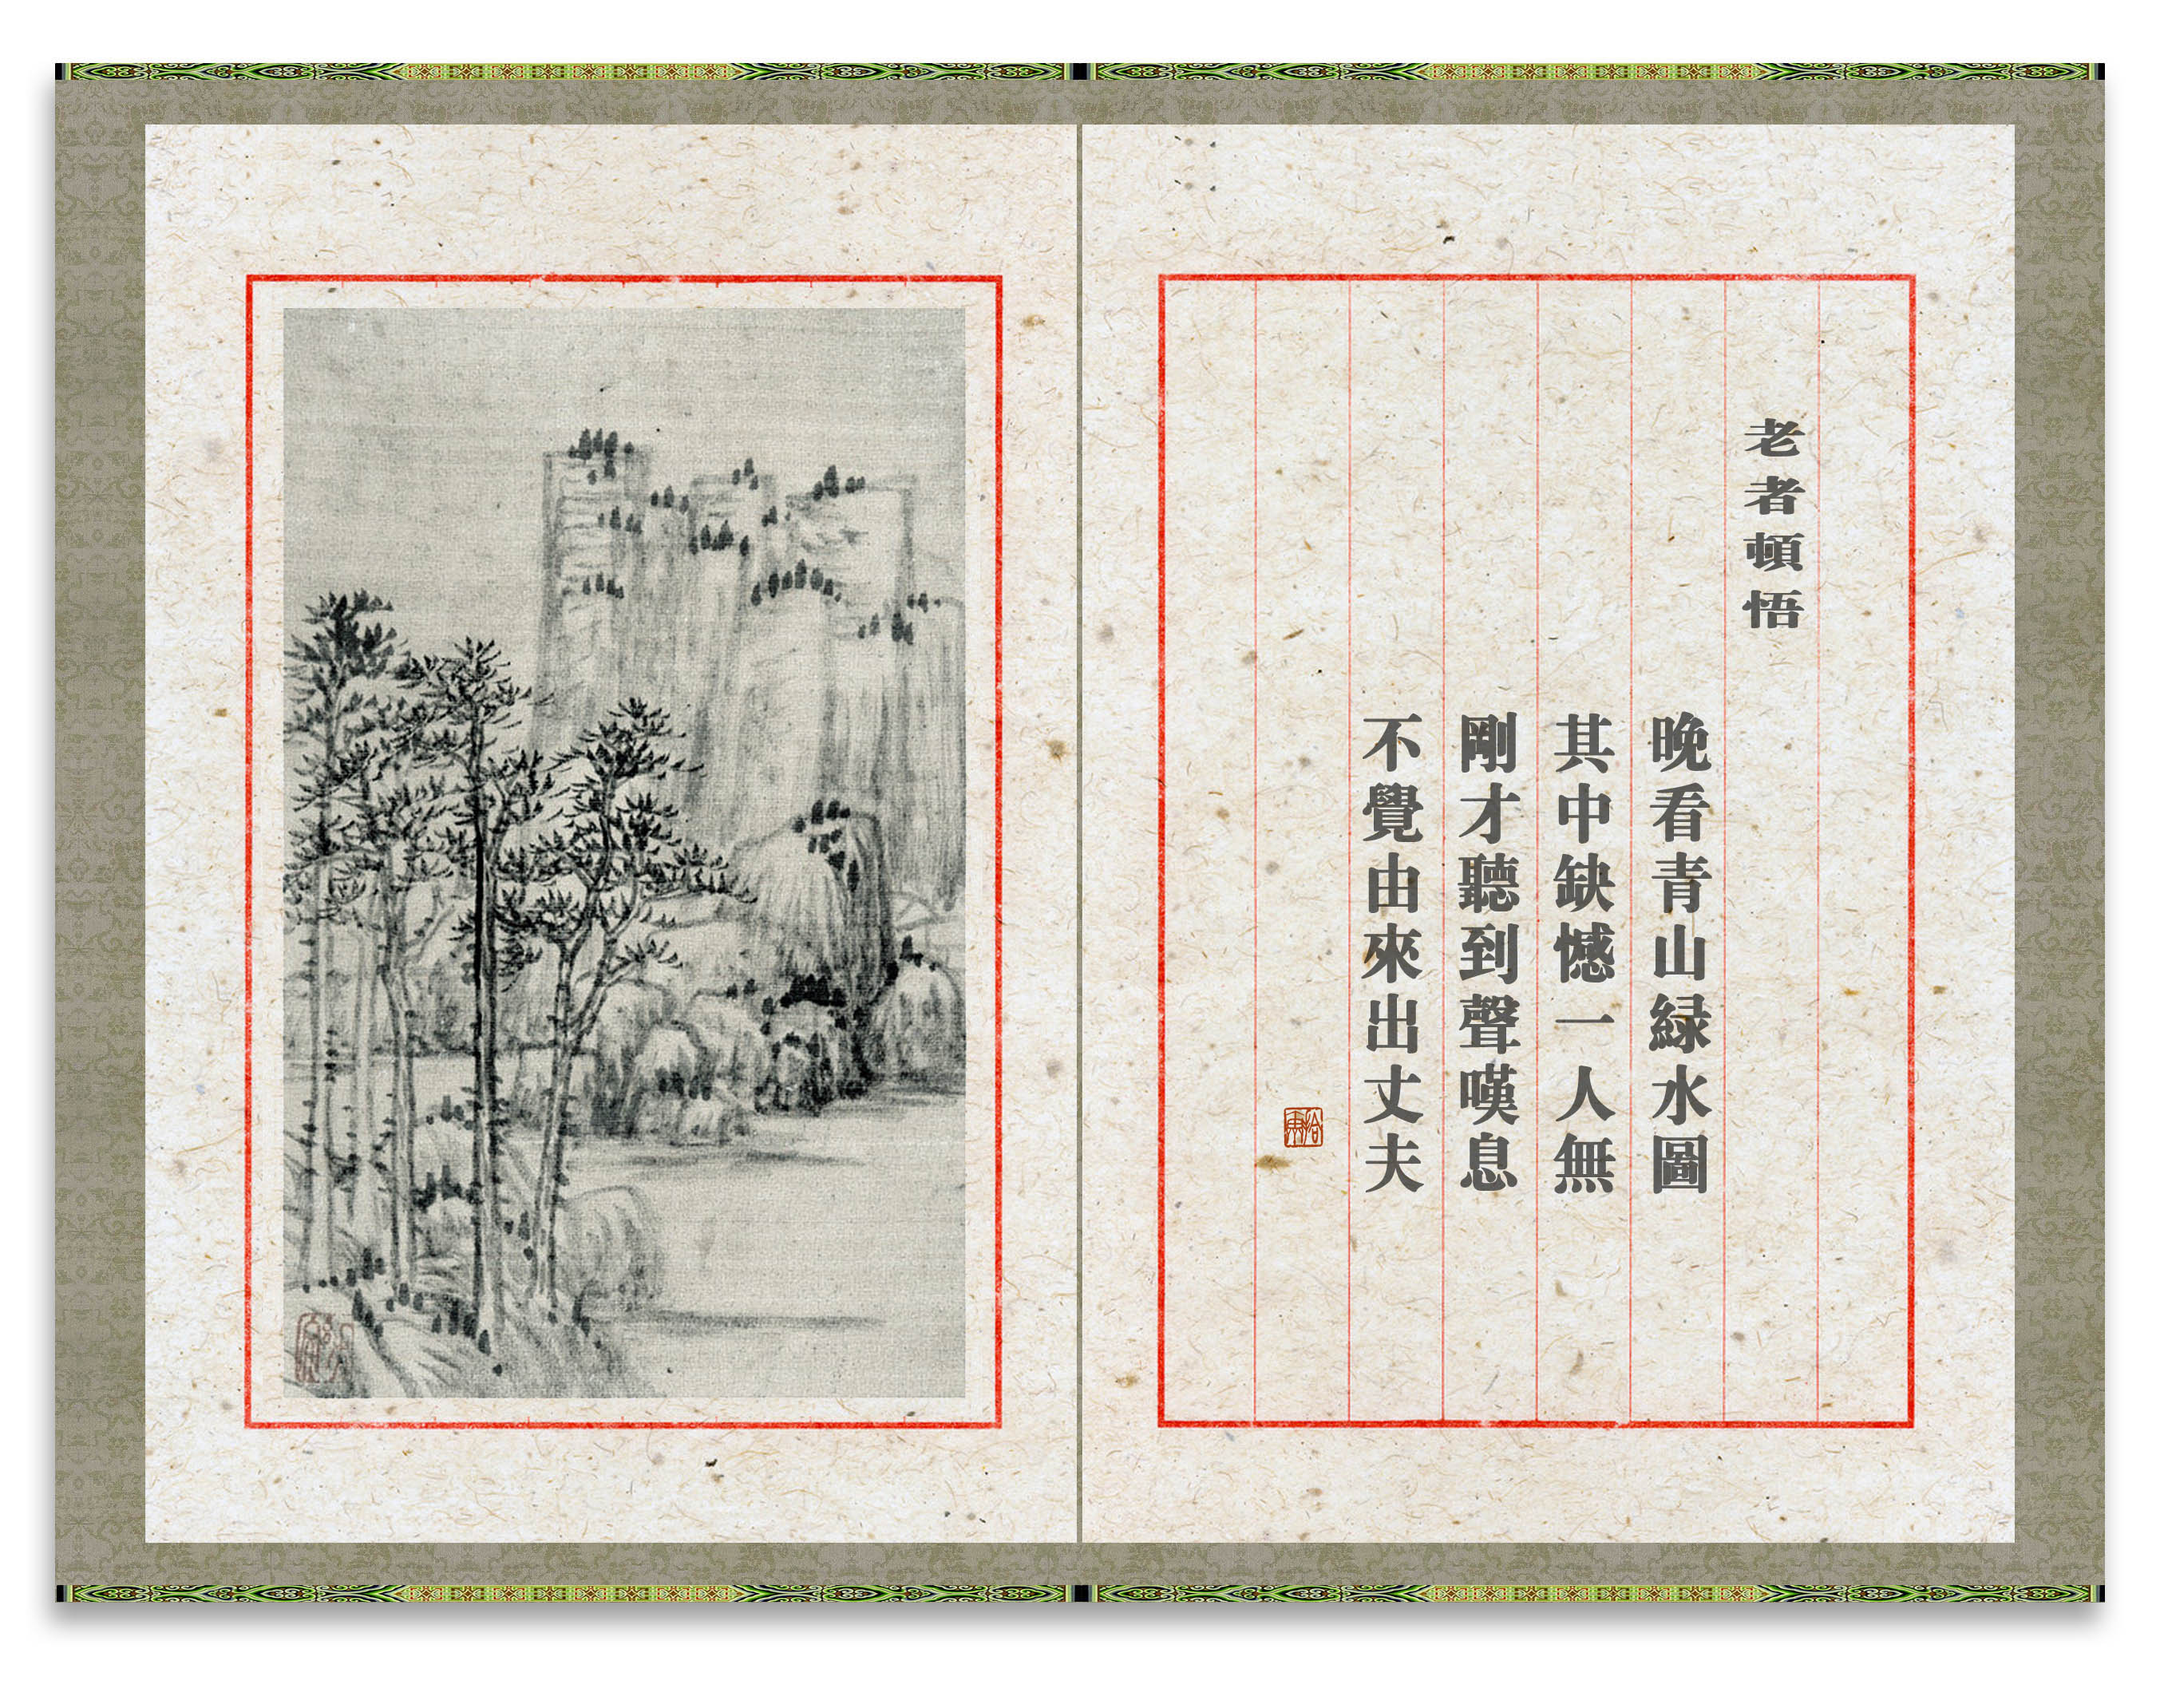 老者頓悟
晚看青山緑水圖
其中缺憾一人無
剛才聽到聲嘆息
不覺由來出丈夫